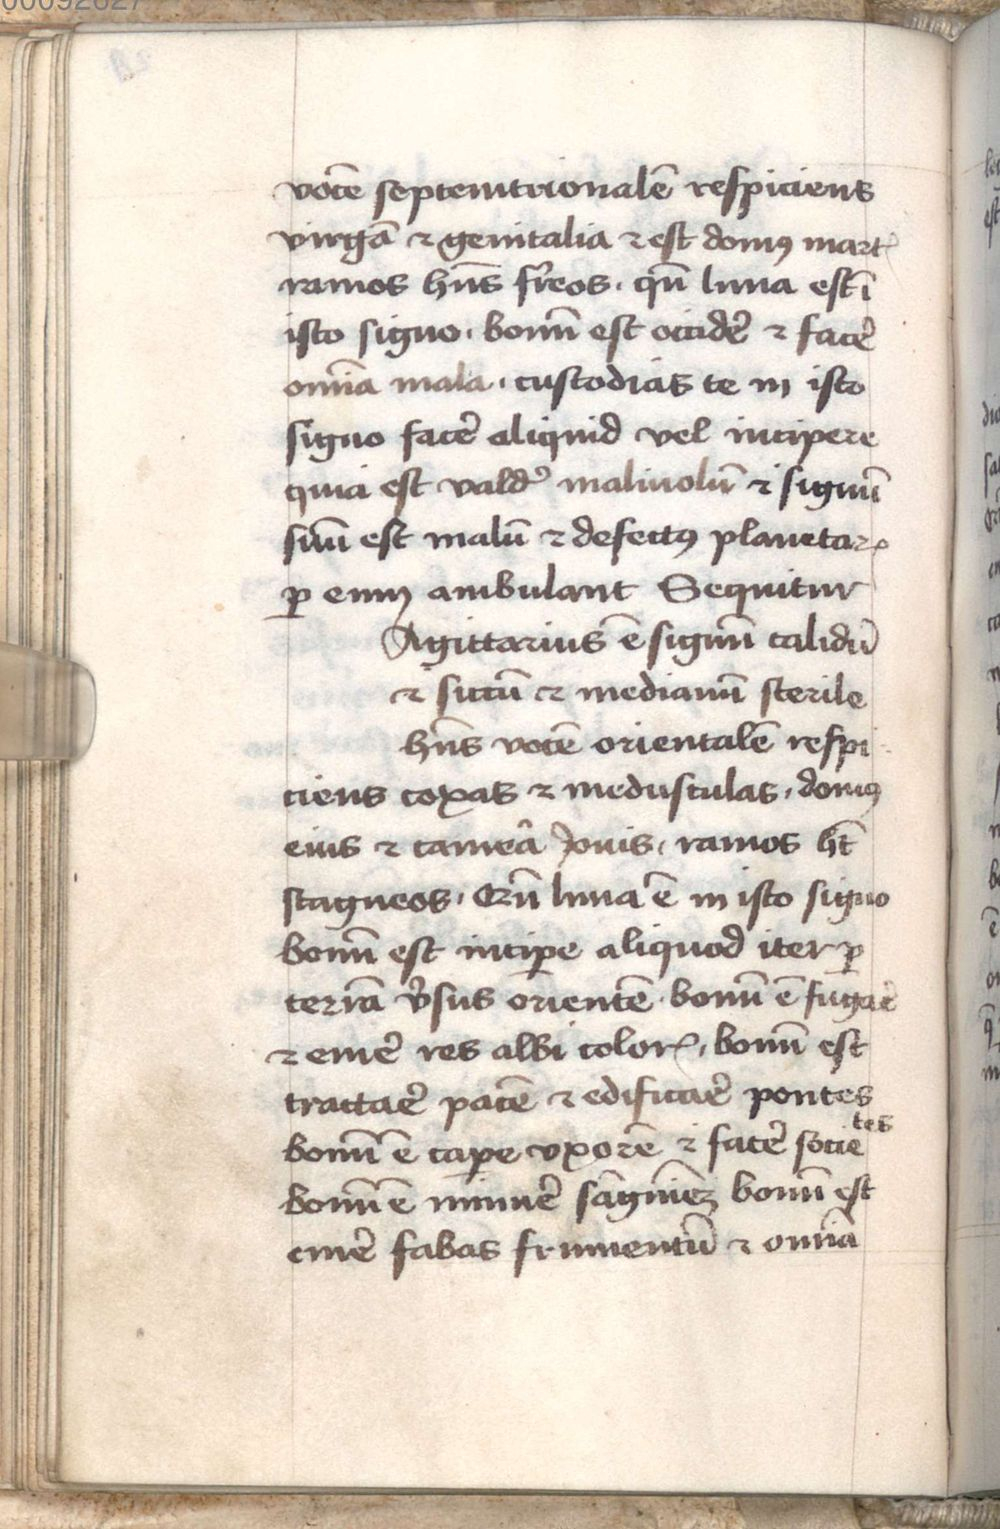 00092627
vocē septemtrionalē respiciens
virgā ⁊ genitalia ⁊ est domꝰ mart᷒
ramos hn̄s fr̄eos. qn̄ luna est ī
isto signo. bonū est occider̄ ⁊ facer̄
om̄ia mala. custodias te in isto
signo facer̄ aliquid vel incipere
quia est vald̄ malivolū ⁊ signū
suū est malū ⁊ defectꝰ planetaꝝ
ꝑ eum ambulant Sequitur
Agittarius ē signū calidū
⁊ siccū ⁊ medianū sterile
hn̄s vocē orientalē respi
ciens coxas ⁊ medusculas. domꝰ
eius ⁊ camerā Jovis. ramos hꝫ
stagneos. Qn̄ luna ē in isto signo
bonū est incipe aliquod iter ꝑ
terrā v̄sus orientē. bonū ē fugaē
⁊ emer̄ res albi color᷒. bonū est
tractaē pacē ⁊ edificaē pontes
bonū ē cape vxorē ⁊ facer̄ socie
tes
bonū ē minuer̄ sāguinēꝫ bonū est
emer̄ fabas frumentū ⁊ om̄ia